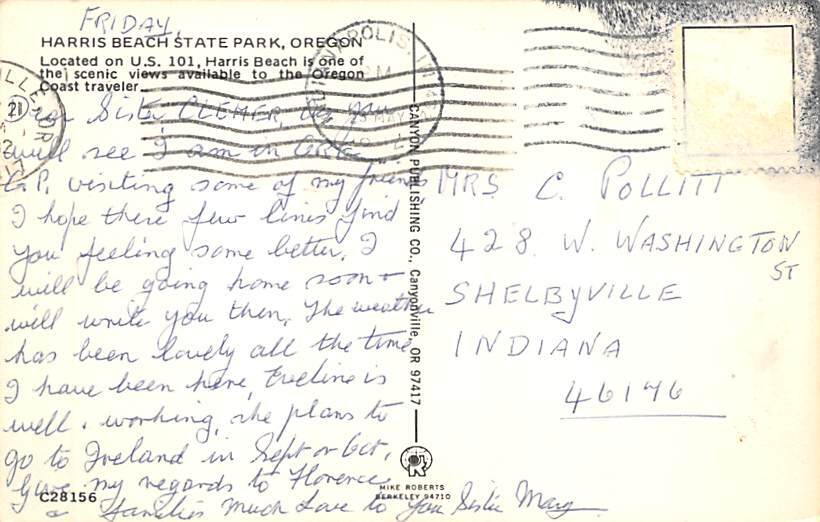 FRIDAY.
HARRIS BEACH STATE PARK, OREGON
Located on U.S. 101, Harris Beach is one of
the scenic views available to the Oregon
Coast traveler.
Sister CLEMER, As you
will see I am in
G.P. visiting some of my friends
I hope these few lines find
you feeling some better. I
will be going home soon +
will write you then. The weather
has been lovely all the time
I have been here, Eveline is
well, working, she plans to
go to Ireland in Sept or Oct.
Give my regards to Florence
& families Much Love to you Sister Mary
C28156
CANYON PUBLISHING CO., Canyonville, OR 97417
MIKE ROBERTS
BERKELEY 94710
MRS C. POLLITT
428 W. WASHINGTON
ST
SHELBYVILLE
INDIANA
46176